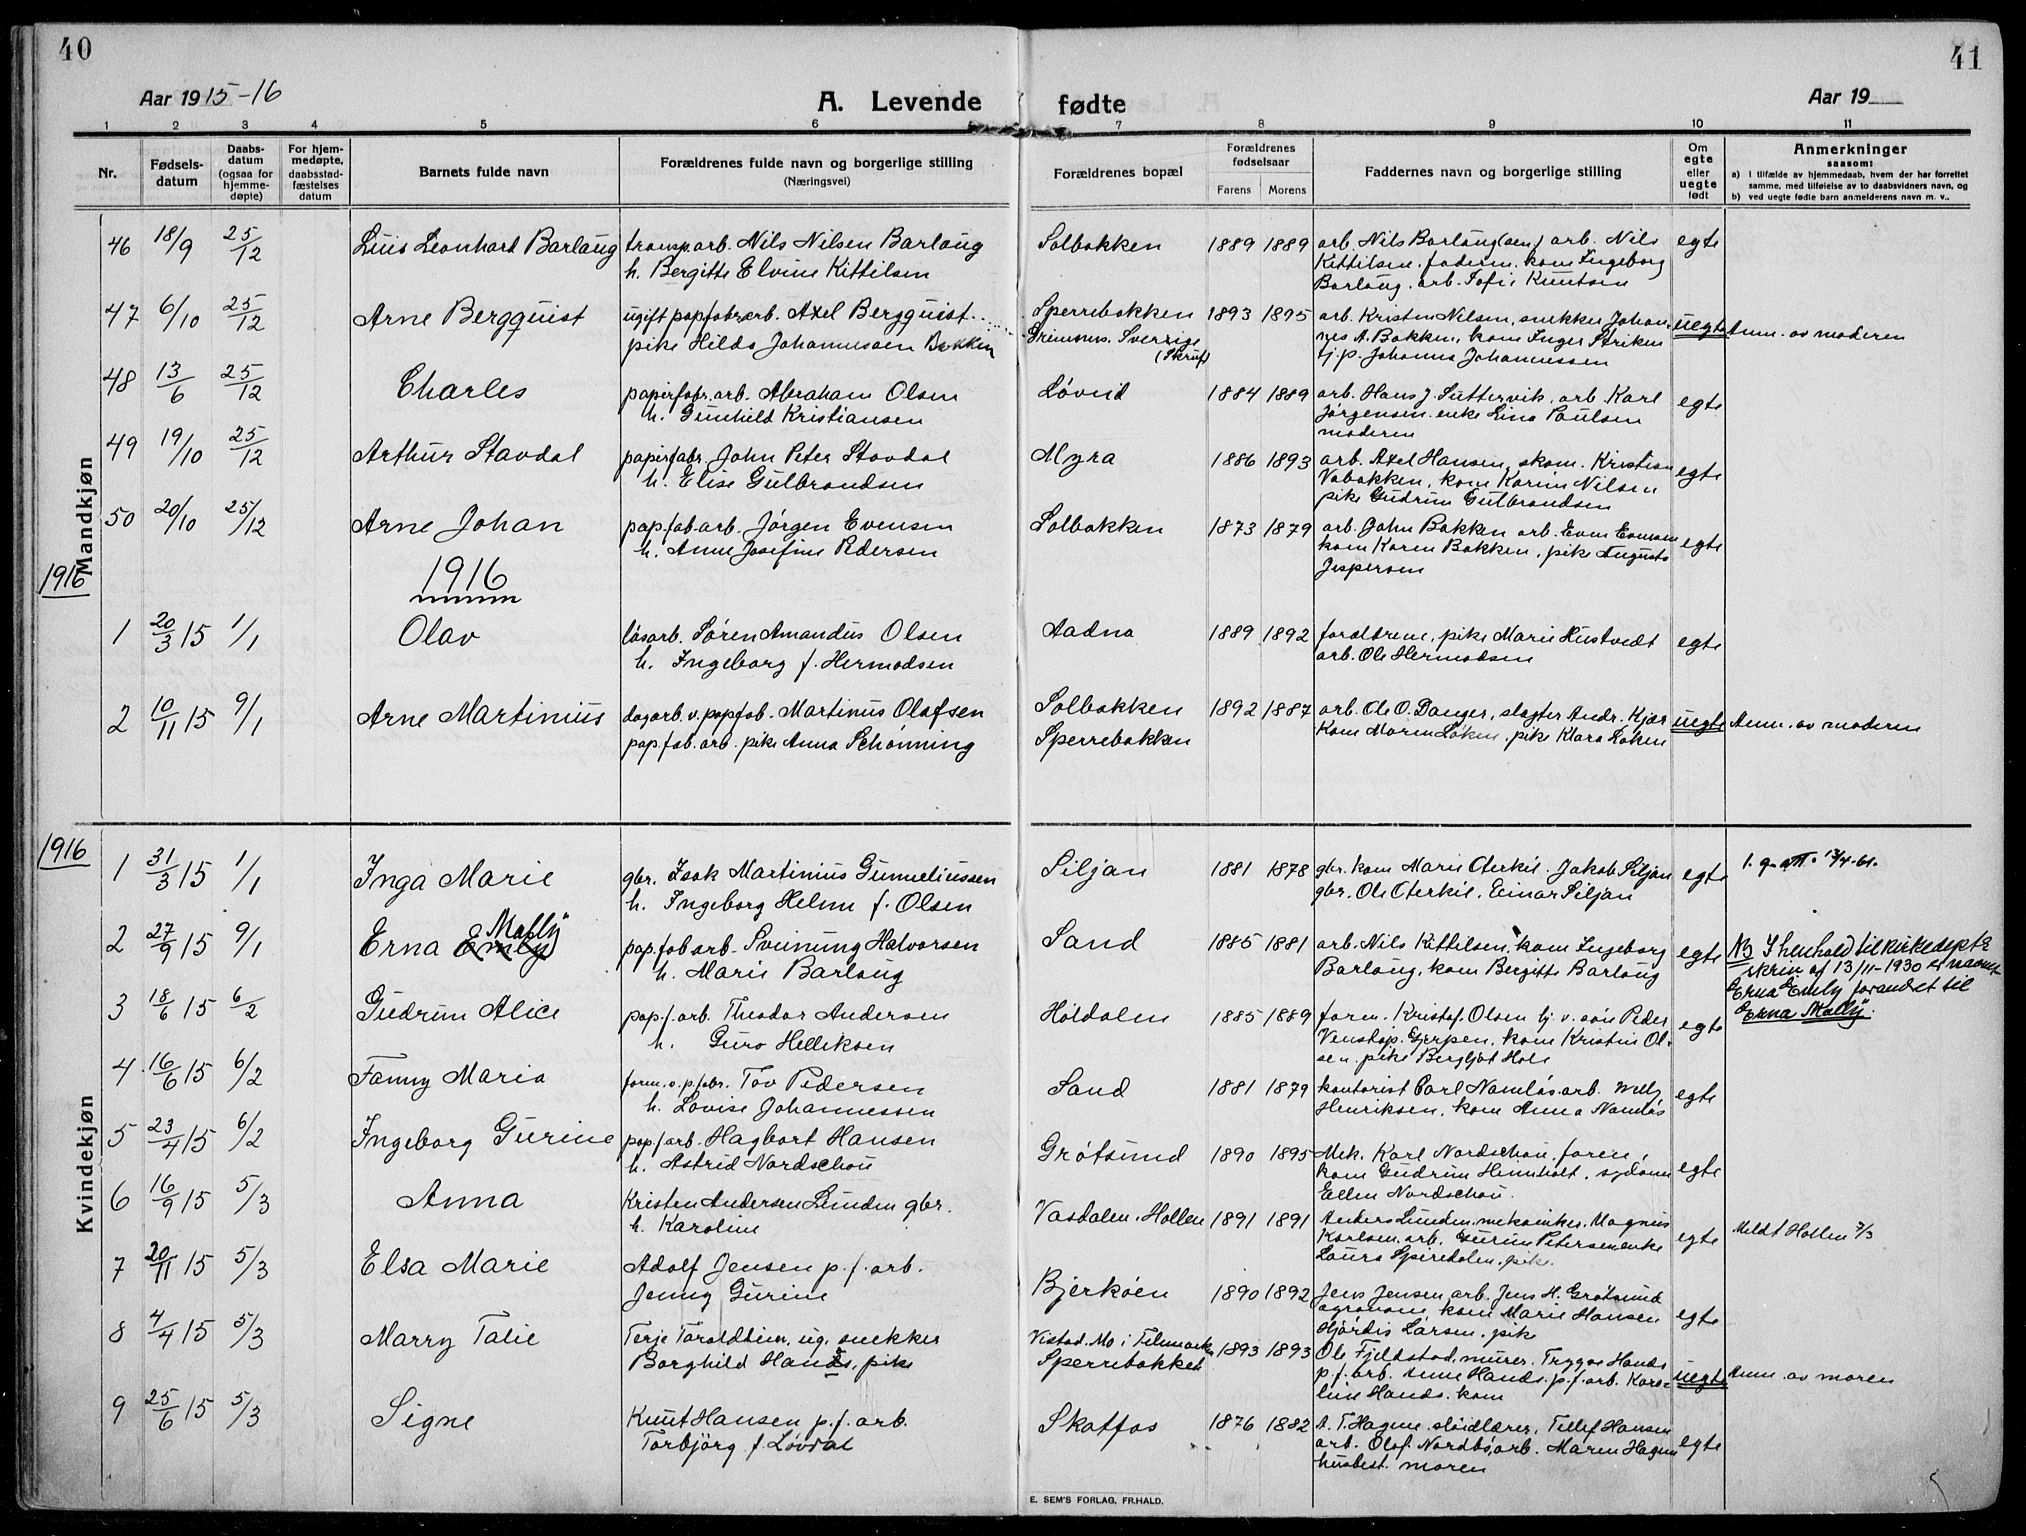 40
41
Aar 1915-16
A. Levende fødte
Aar 19
1 2 3 4 5 6 7 8 9 10 11
Nr.
Fødsels-
datum
Daabs-
datum
(ogsaa for
hjemme-
døpte)
For hjem-
medøpte,
daabsstad-
fæstelses
datum
Barnets fulde navn
Forældrenes fulde navn og borgerlige stilling
(Næringsvei)
Forældrenes bopæl
Forældrenes
fødselsaar
Farens Morens
Faddernes navn og borgerlige stilling
Om
egte
eller
uegte
født
Anmerkninger
saasom:
a) I tilfælde av hjemmedaab, hvem der har forrettet
samme, med tilføielse av to daabsvidners navn, og
b) ved uegte fødte barn anmelderens navn m. v..
Mandkjøn
46 18/9 25/12 Leonhard Barlaug transp.arb. Nils Nilsen Barlaug Solbakken 1889 1889 arb. Nils Barlaug (sen) arb. Nils egte
h. Bergitte Elvine Kittilsen Kittilsen. faderen. kom Ingeborg
Barlaug. arb. Sofie Knutsen
47 6/10 25/12 Arne Bergquist ugift papfabr.arb. Axel Bergquist Sperrebakken 1893 1895 arb. Kristen Nilsen, snekker Johan- uegte Anm. av moderen
pike Hilda Johannessen Bakken Grimsnes. Sverrige nes A. Bakken, kone Inger
(Skruf) tj.p. Johanna Johannessen
48 13/6 25/12 Charles papirfabr.arb. Abraham Olsen Løvlid 1884 1889 arb. Hans J. Suttervik, arb. Karl egte
h. Gunhild Kristiansen Jørgensen. enke Lina Paulsen
moderen
49 19/10 25/12 Arthur Stavdal papirfabr. John Peter Stavdal Myra 1886 1893 arb. Axel Hansen, skom. Kristian egte
h. Elise Gulbrandsen Vabakken, kone Karine Nilsen
pike Gudrun Gulbrandsen
50 20/10 25/12 Arne Johan pap.fab.arb. Jørgen Evensen Solbakken 1873 1879 arb. John Bakken arb. Even Evensen egte
h. Anne Josefine Pedersen kone Karen Bakken, pike Augusta
Jespersen
1916
1916
1 20/3 15 1/1 Olav løsarb. Søren Amandus Olsen Aadna 1889 1892 forældrene, pike Marie Rustvedt egte
h. Ingeborg f. Hermodsen arb. Ole Hermodsen
2 10/11 15 9/1 Arne Martinius dagarb. v. papfab. Martinus Olafsen Solbakken 1892 1887 arb. Ole O. Danger, slagter Andr. Kjær uegte Anm. av moderen
pap.fab.arb. pike Anna Schønning Sperrebakken Kone Maren Løken, pike Klara Løken
1916
Kvindekjøn
1 31/3 15 1/1 Inga Marie gbr. Isak Martinius Gunneliussen Siljan 1881 1878 gbr. kone Marie Oterkil. Jakob Siljan egte
h. Ingeborg Helene f. Olsen gbr. Ole Oterkil. Einar Siljan
2 27/9 15 9/1 Erna Emly Mally pap.fab.arb. Sveinung Halvorsen Sand 1885 1881 arb. Nils Kittilsen, kone Ingeborg egte NB I henhold til kirkedept's
h. Marie Barlaug Barlaug, kone Bergitte Barlaug skriv af 13/11-1930 er navnet
Erna Emly forandret til
Erna Mally.
3 18/6 15 6/2 Gudrun Alice pap.f.arb. Theodor Andersen Høldalen 1885 1889 form. Kristof. Olsen tj. v. søn Peder egte
h. Guro Helleksen Venstøp. Gjerpen. kone Kristine Ol-
sen. pike Bergljot Hole
4 16/6 15 6/2 Fanny Maria form. v. p.fabr. Tov Pedersen Sand 1881 1879 kontorist Carl Namløs. arb. Willy egte
h. Lovise Johannessen Henriksen, kone Anna Namløs
5 23/4 15 6/2 Ingeborg Gurine pap.f.arb. Hagbart Hansen Grøtsund 1890 1895 Mek. Karl Nordschou, foren, egte
h. Astrid Nordschou kone Gudrun Himholt. sydame
Ellen Nordschou.
6 16/9 15 5/3 Anna Kristen Andersen Lunden gbr. Vasdalen. Hollen 1891 1891 Anders Lunden. mekaniker. Magnus egte Meldt Hollen 7/3
h. Karoline Karlsen. arb. Gurine Petersen enke
Laura Spiredalen. pike.
7 20/11 15 5/3 Elsa Marie Adolf Jensen p.f. arb. Bjerkøen 1890 1892 Jens Jensen arb. Jens H. Grøtsund egte
Jenny Gurine agronom. kone Marie Hansen
Hjørdis Larsen. pike
8 4/4 15 5/3 Marry Talie Terje Taraldheim, ug. snekker Vistad. Mo i Telemarken 1893 1893 Ole Fjeldstad. murer. Trygve Hands uegte Anm. av moren
Borghild Hands, pike Sperrebakken p.f.arb. Anne Hands. p.f.arb. Karo-
line Hands. kone
9 25/6 15 5/3 Signe Knut Hansen p.f. arb. Skotfos 1876 1882 A. T. Hagene. sløidlærer, Tellef Hansen egte
Torbjørg f. Løvdal arb. Olaf Nordbø, arb. Maren Hagene
husbest. moren
E. SEM'S FORLAG, FR.HALD.